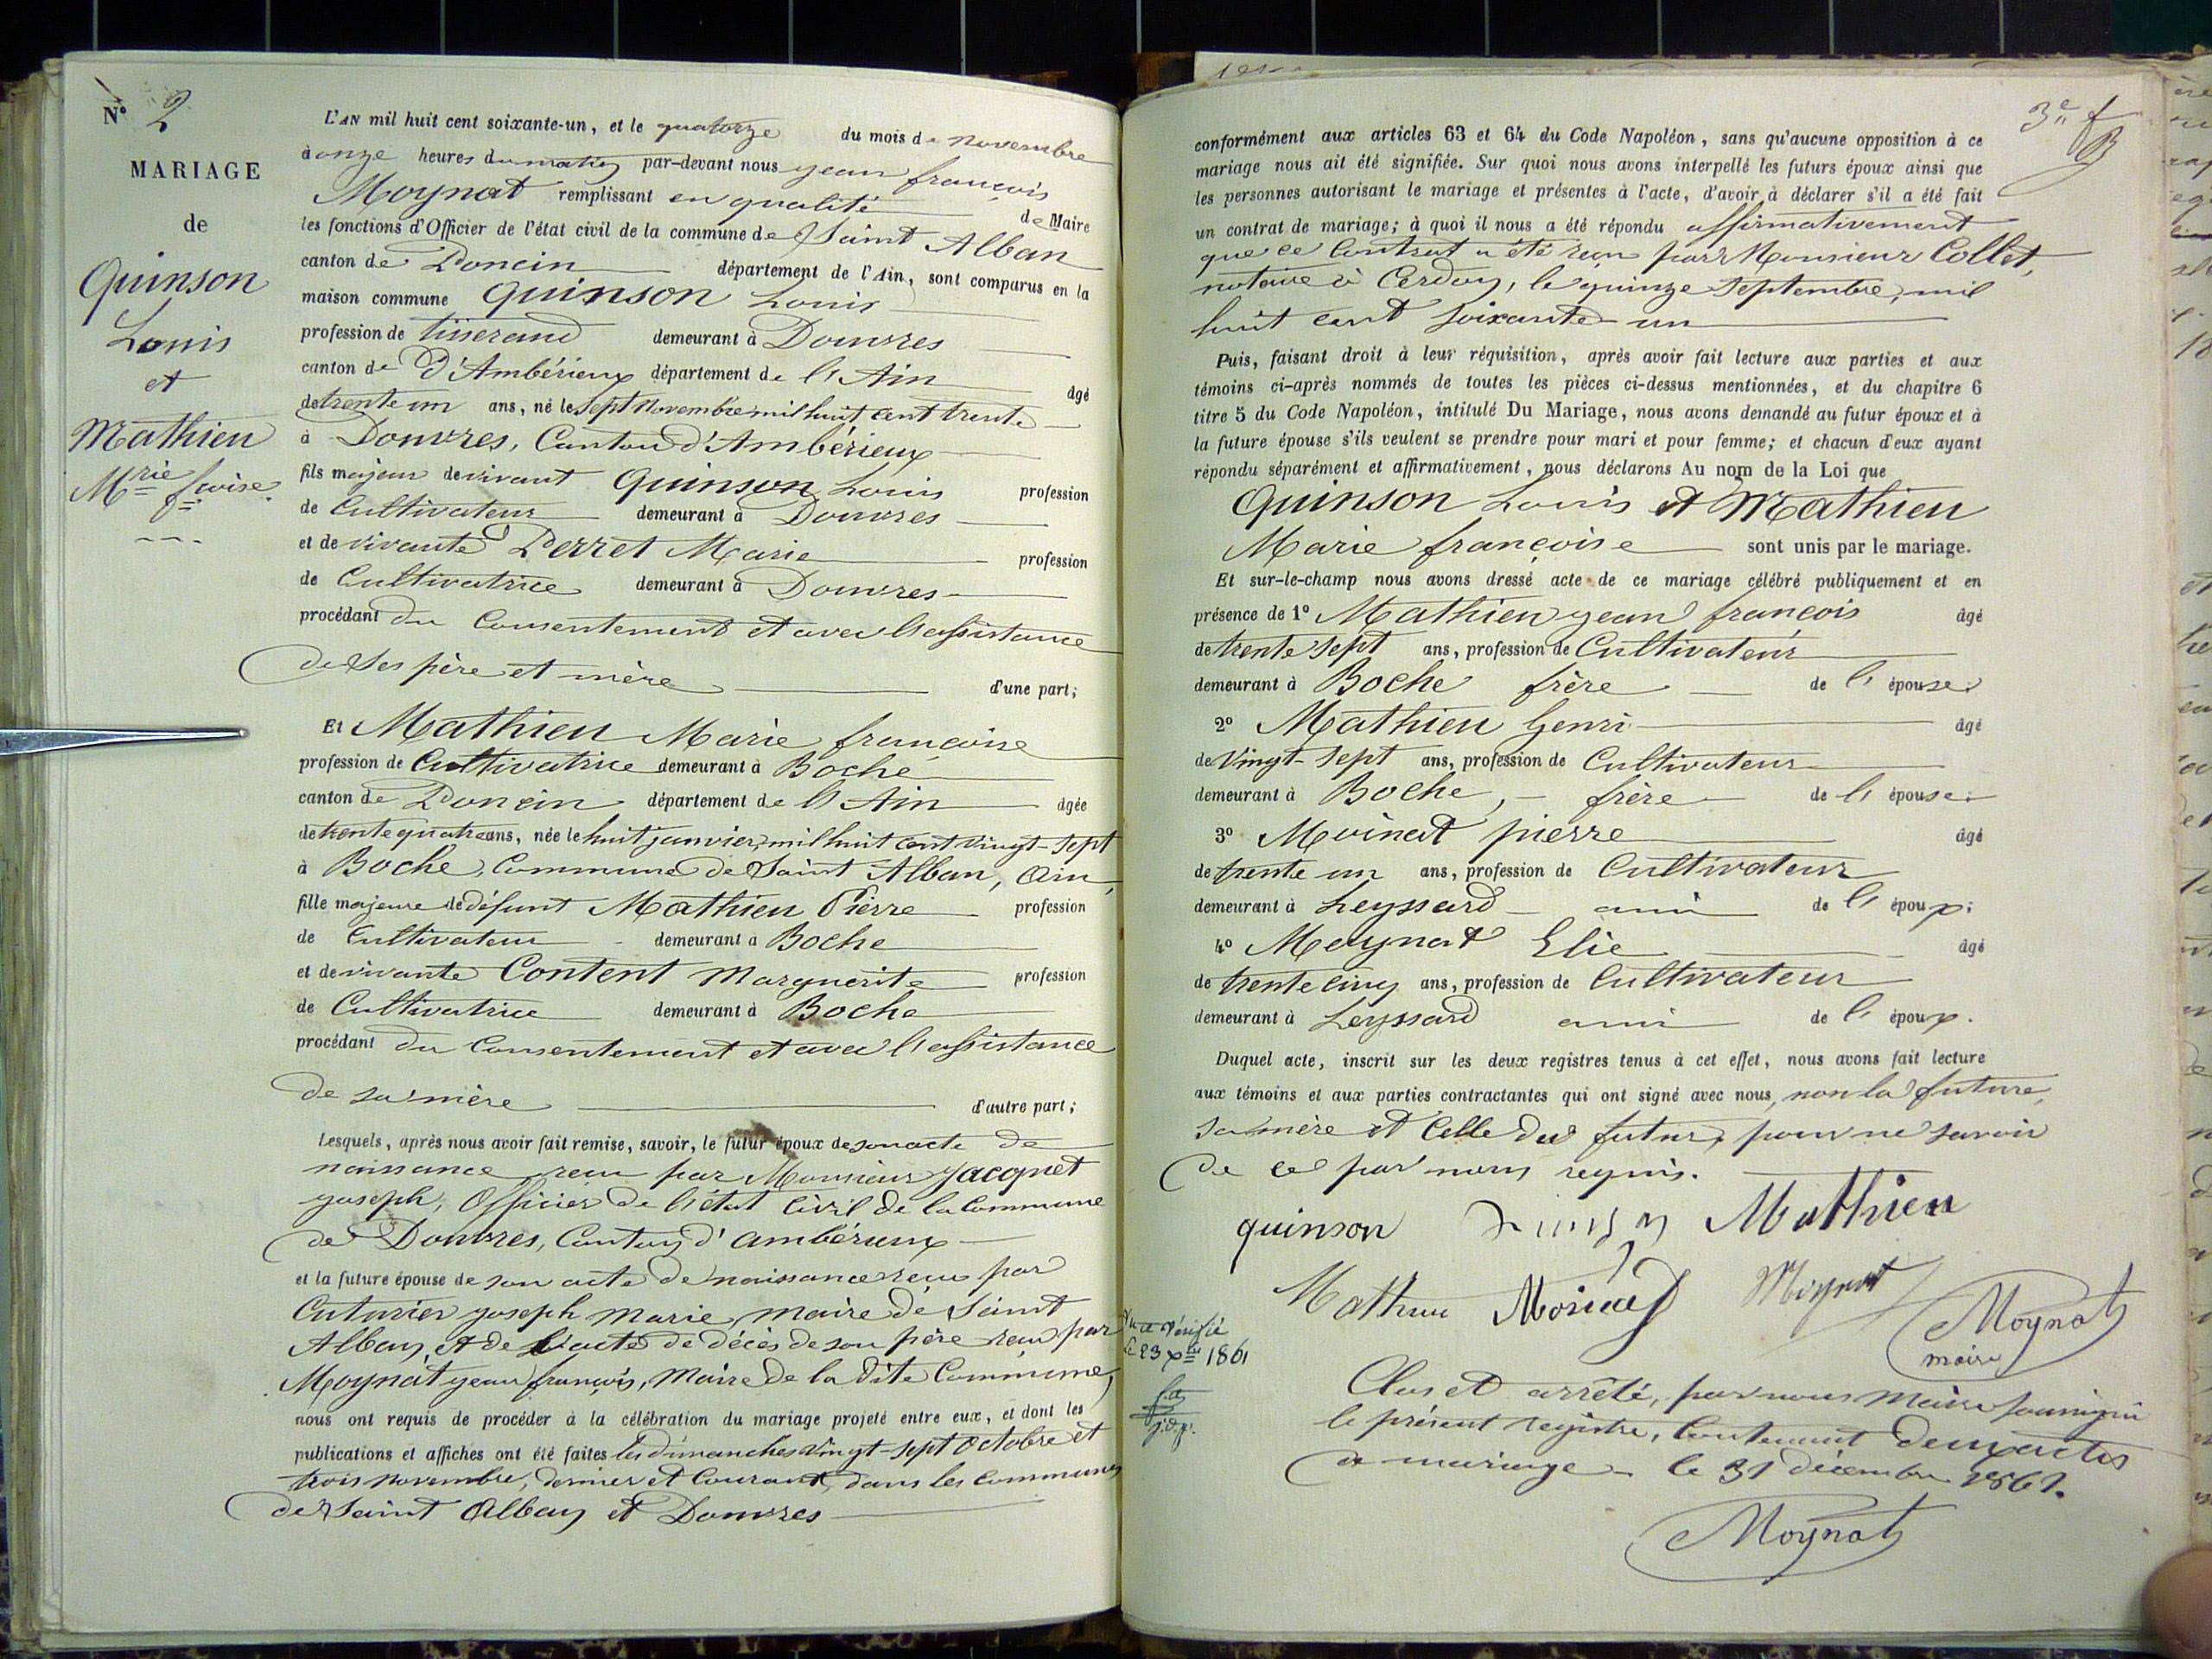 N° 2
MARIAGE
de
Quinson
Louis
et
Mathieu
Mrie fçoise.
L'AN mil huit cent soixante-un, et le quatorze du mois de novembre
à onze heures du matin par-devant nous jean françois
Moynat remplissant en qualité de Maire
les fonctions d'Officier de l'état civil de la commune de Saint Alban
canton de Poncin département de l'Ain, sont comparus en la
maison commune Quinson Louis
profession de tisserand demeurant à Douvres
canton de d'Ambérieux département de l'Ain âgé
de trente un ans, né le sept novembre mil huit cent trente
à Douvres, Canton d'Ambérieux
fils majeur de vivant Quinson Louis profession
de Cultivateur demeurant à Douvres
et de vivante Perret Marie profession
de Cultivatrice demeurant à Douvres
procédant du Consentement et avec l'assistance
de ses père et mère d'une part;
Et Mathieu Marie françoise
profession de Cultivatrice demeurant à Boche
canton de Poncin département de l'Ain âgée
de trente quatre ans, née le huit janvier, mil huit cent vingt-sept
à Boche, Commune de Saint Alban, Ain,
fille majeure de défunt Mathieu Pierre profession
de Cultivateur demeurant à Boche
et de vivante Content Marguerite profession
de Cultivatrice demeurant à Boche
procédant du Consentement et avec l'assistance
de sa mère d'autre part;
Lesquels, après nous avoir fait remise, savoir, le futur époux de son acte de
naissance reçu par Monsieur Jacquet
joseph, Officier de l'état Civil de la Commune
de Douvres, Canton d'ambérieux
et la future épouse de son acte de naissance reçu par
Cuturier joseph Marie, Maire de Saint
Alban, et de l'acte de décès de son père reçu par
Moynat jean françois, Maire de la dite Commune,
nous ont requis de procéder à la célébration du mariage projeté entre eux, et dont les
publications et affiches ont été faites les dimanches vingt-sept Octobre et
trois novembre, dernier et Courant, dans les communes
de Saint Alban et Douvres
3e f
conformément aux articles 63 et 64 du Code Napoléon, sans qu'aucune opposition à ce
mariage nous ait été signifiée. Sur quoi nous avons interpellé les futurs époux ainsi que
les personnes autorisant le mariage et présentes à l'acte, d'avoir à déclarer s'il a été fait
un contrat de mariage; à quoi il nous a été répondu affirmativement
que ce Contrat a été reçu par Monsieur Collet,
notaire à Cerdon, le quinze Septembre, mil
huit cent soixante-un
Puis, faisant droit à leur réquisition, après avoir fait lecture aux parties et aux
témoins ci-après nommés de toutes les pièces ci-dessus mentionnées, et du chapitre 6
titre 5 du Code Napoléon, intitulé Du Mariage, nous avons demandé au futur époux et à
la future épouse s'ils veulent se prendre pour mari et pour femme; et chacun d'eux ayant
répondu séparément et affirmativement, nous déclarons Au nom de la Loi que
Quinson Louis et Mathieu
Marie françoise sont unis par le mariage.
Et sur-le-champ nous avons dressé acte de ce mariage célébré publiquement et en
présence de 1° Mathieu jean françois âgé
de trente sept ans, profession de Cultivateur
demeurant à Boche frère de l'épouse;
2° Mathieu henri âgé
de vingt-sept ans, profession de Cultivateur
demeurant à Boche, frère de l'épouse;
3° Moinat pierre âgé
de trente un ans, profession de Cultivateur
demeurant à Leyssard ami de l'époux;
4° Moynat Elie âgé
de trente cinq ans, profession de Cultivateur
demeurant à Leyssard ami de l'époux.
Duquel acte, inscrit sur les deux registres tenus à cet effet, nous avons fait lecture
aux témoins et aux parties contractantes qui ont signé avec nous, non la future,
sa mère et Celle du futur, pour ne savoir
de ce par nous requis.
quinson Mathieu
Mathieu Moinat Moynat Moynat
maire
Vu et vérifié
le 23 xbre 1861
j.d.p.
Clos et arrêté, par nous Maire soussigné
le présent registre, Contenant deux actes
de mariage. le 31 décembre 1861.
Moynat